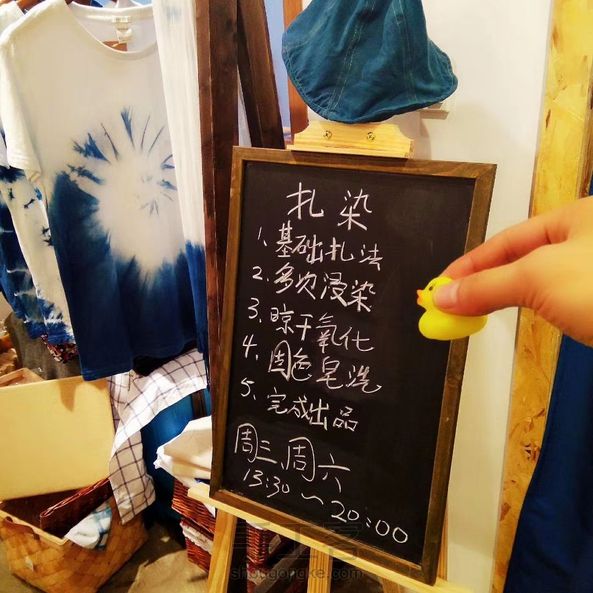 扎染
1、基础扎法
2、多次浸染
3、晾干氧化
4、固色皂洗
5、完成出品
周三、周六
13:30～20:00
shougongke.com